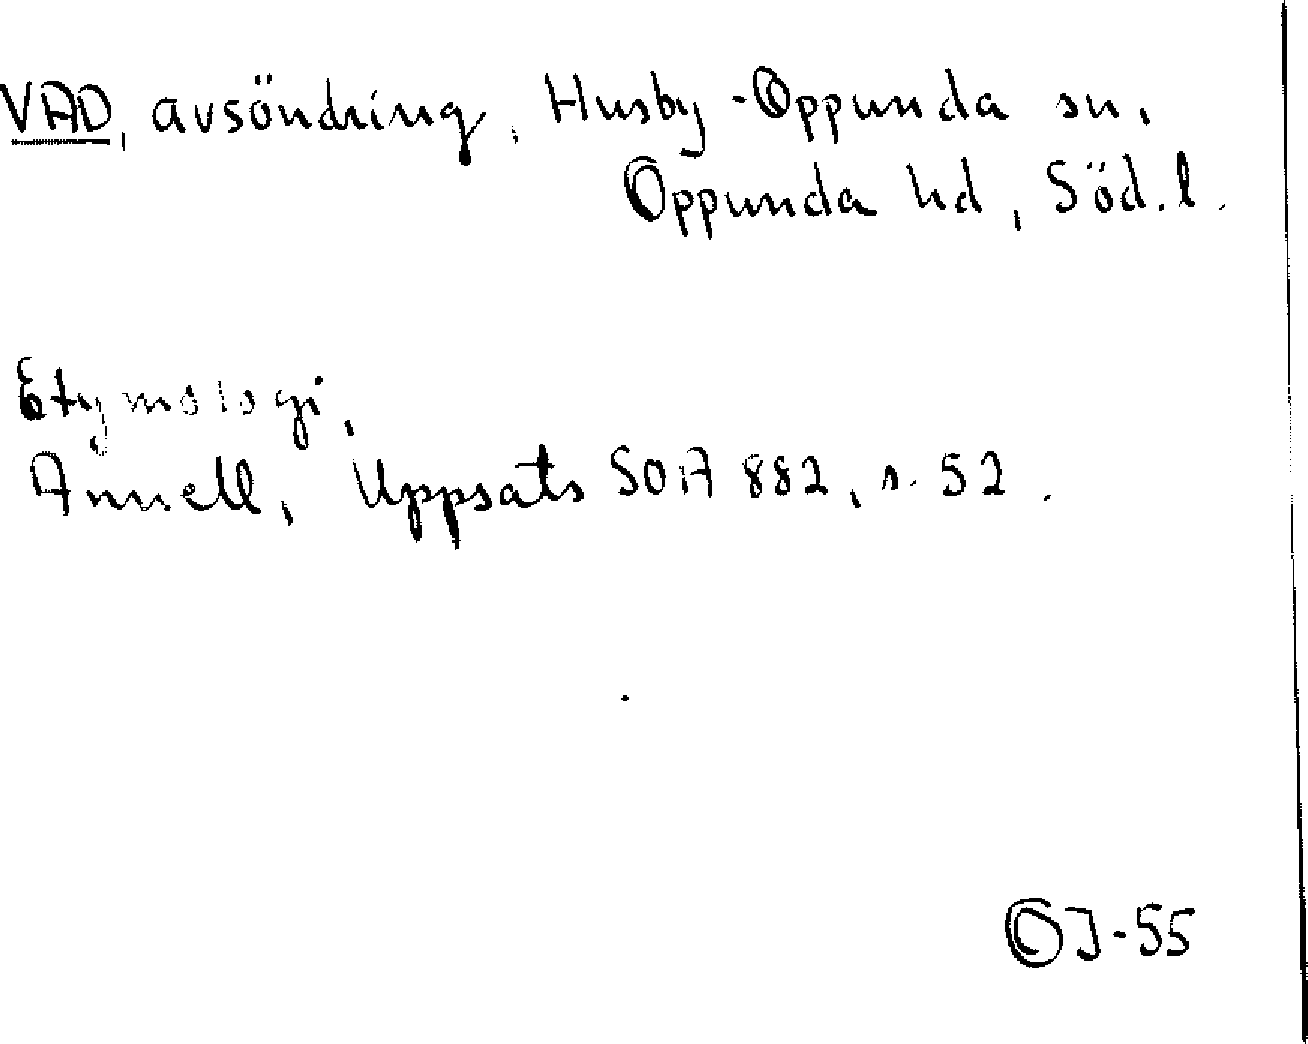 VAD, avsöndring, Husby-Oppunda sn,
Oppunda hd, Söd.l.
Etymologi,
Ånnell, Uppsats SOA 882, s. 52.
OJ-55